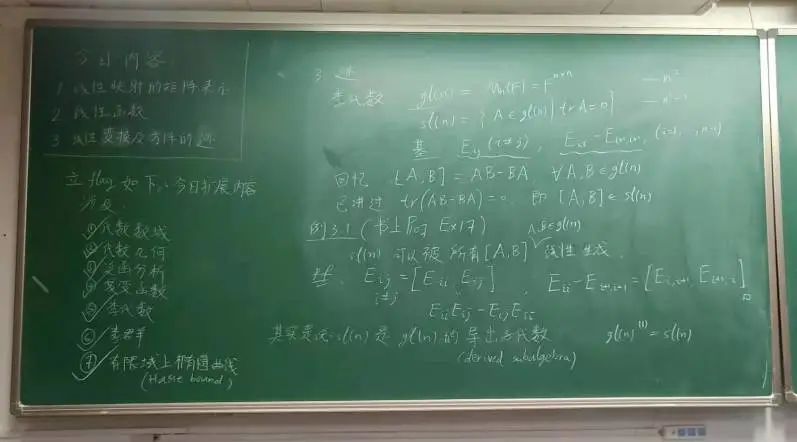 今日内容:
1 线性映射的矩阵表示
2 线性函数
3 线性变换及方阵的迹
立flag如下:今日扩展内容
涉及:
① 代数数域
② 代数几何
③ 泛函分析
④ 复变函数
⑤ 李代数
⑥ 李群
⑦ 有限域上椭圆曲线
(Hasse bound)
3 迹
李代数 gl(n) = Mn(F) = F^{n×n} — n²
sl(n) = { A ∈ gl(n) | tr A = 0 } — n²-1
基 E_{ij} (i≠j), E_{ii} - E_{i+1,i+1}, (i=1, , n-1)
回忆 [A,B] = AB-BA ∀A,B ∈ gl(n)
已讲过 tr(AB-BA)=0, 即 [A,B] ∈ sl(n)
例3.1 (书上 Ex17)
A,B∈gl(n)
sl(n) 可以被所有[A,B] 线性生成.
Pf. E_{ij} = [E_{ii}, E_{ij}], E_{ii} - E_{i+1,i+1} = [E_{i,i+1}, E_{i+1,i}] □
i≠j
E_{ii}E_{ij} - E_{ij}E_{ii}
其实是说 sl(n) 是 gl(n) 的导出子代数 gl(n)^{(1)} = sl(n)
(derived subalgebra)